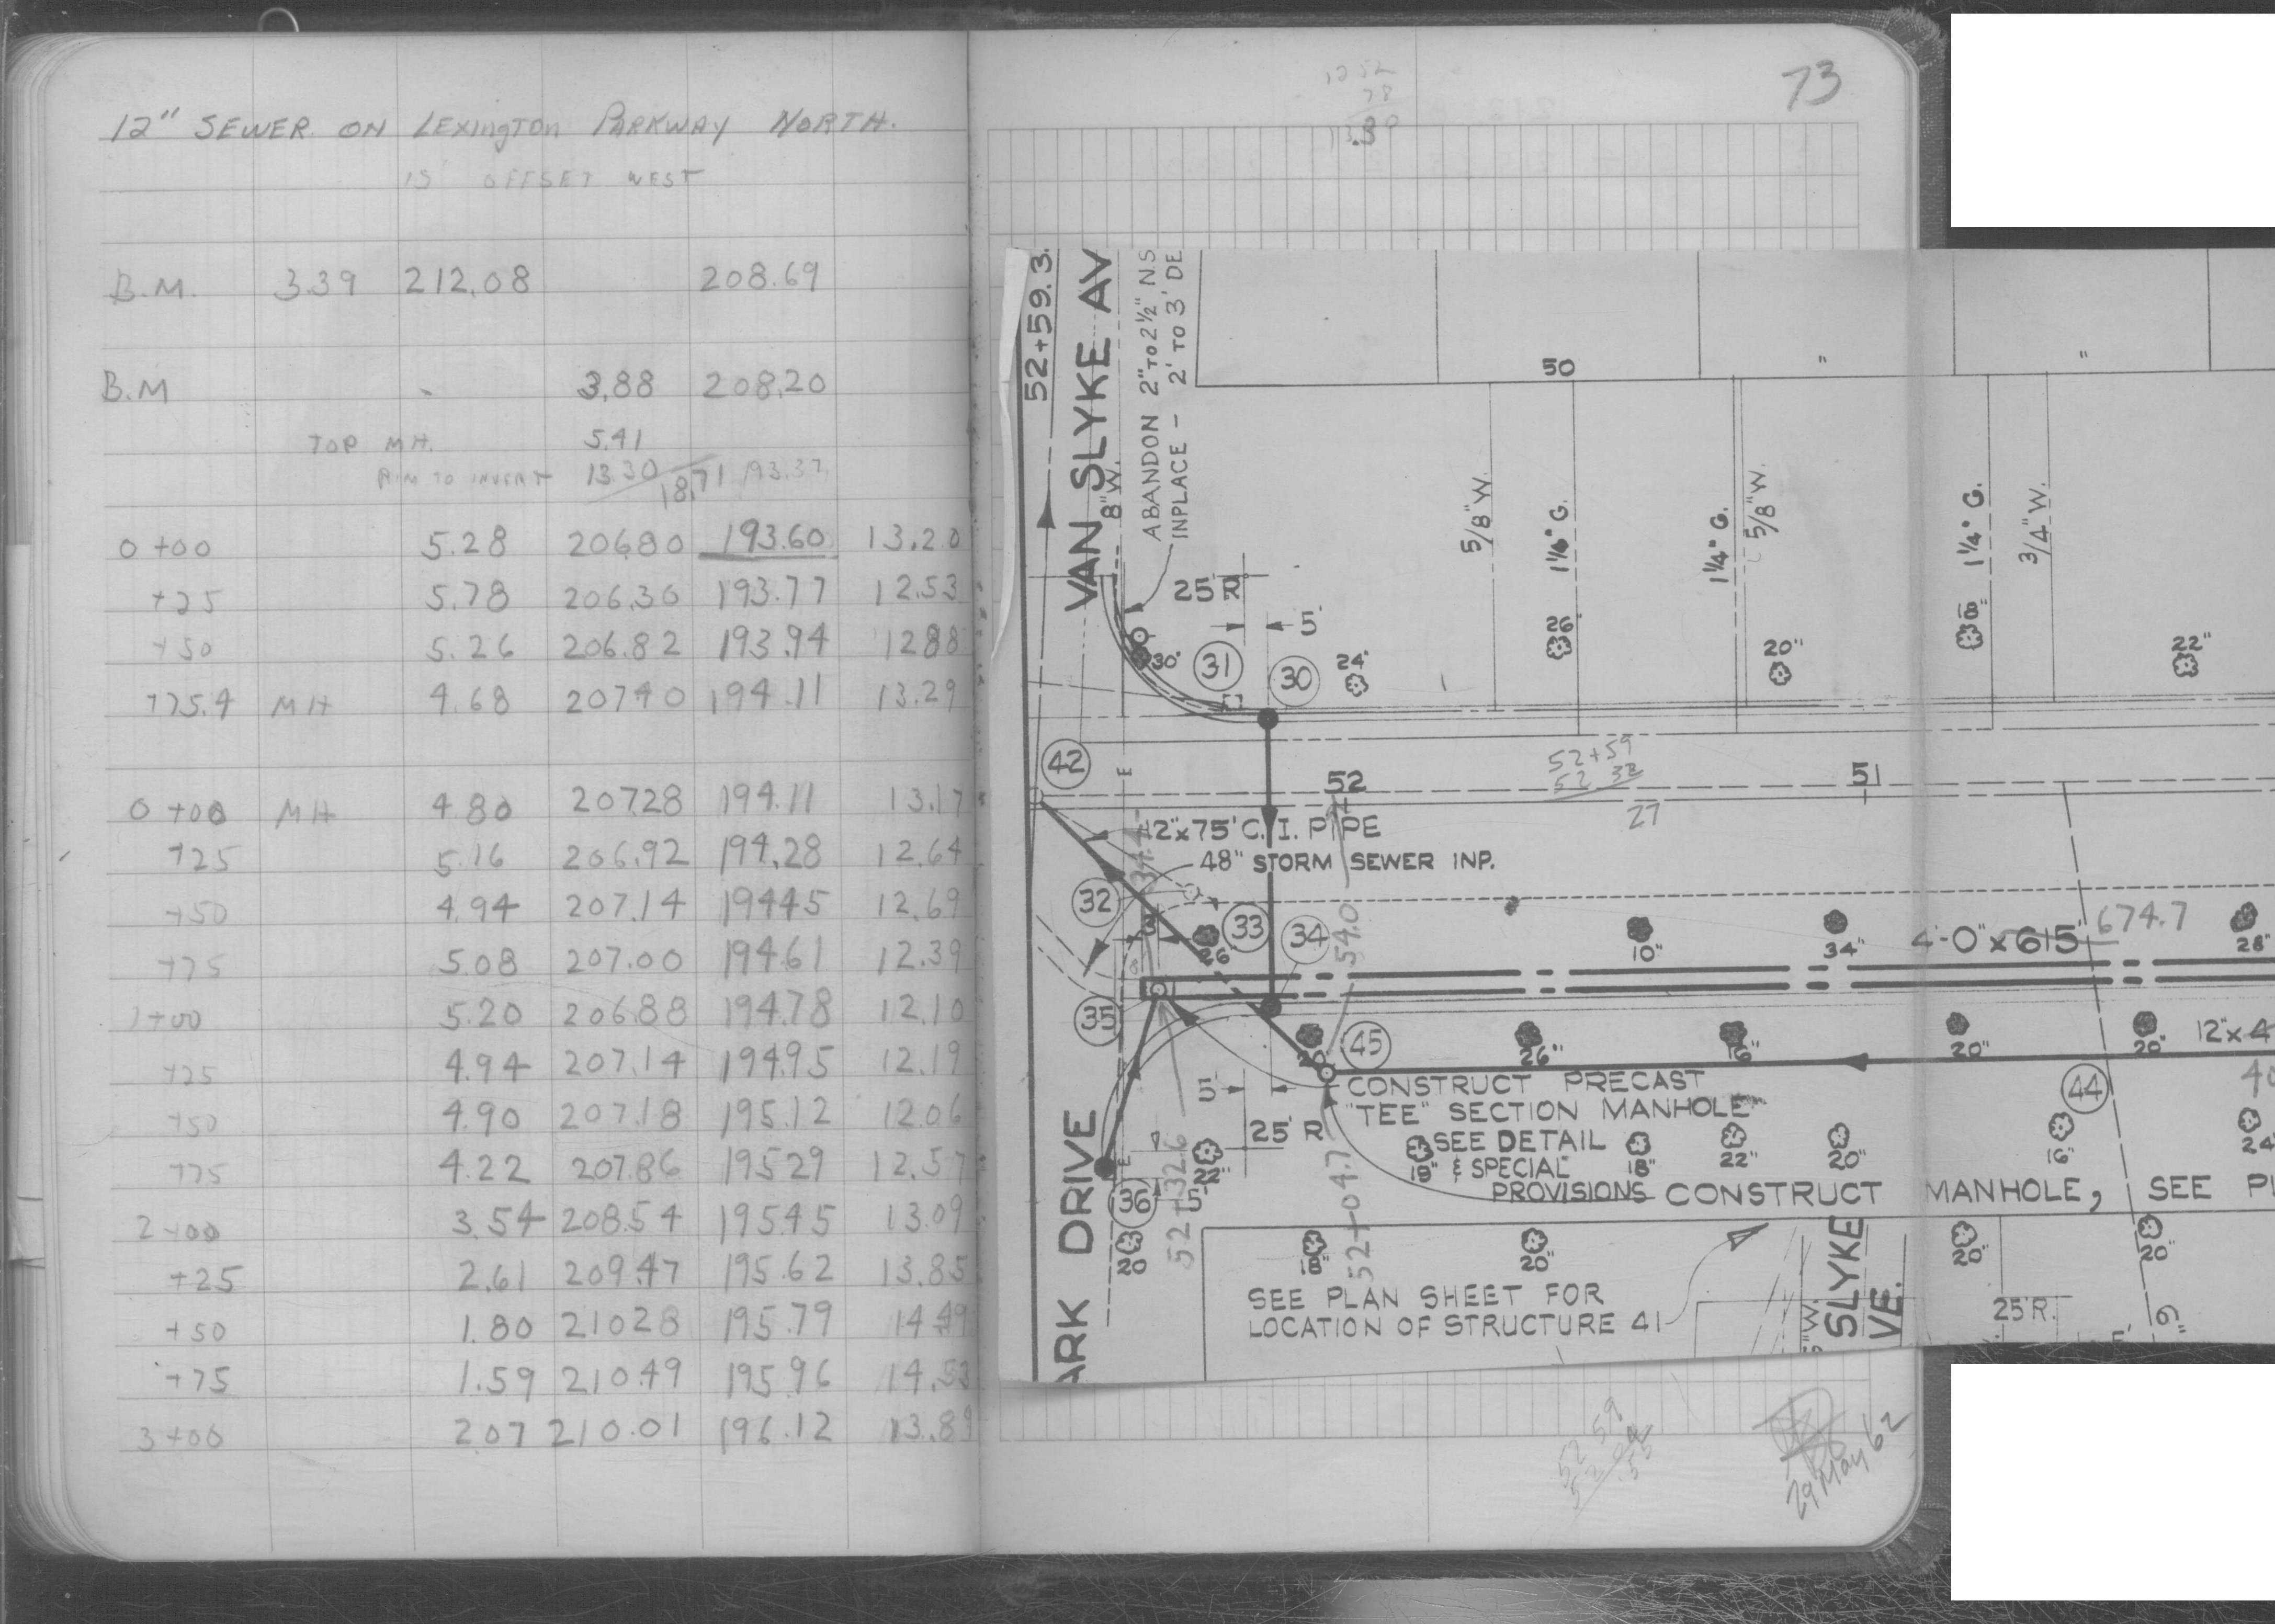 12" SEWER ON LEXINGTON PARKWAY NORTH.
15' OFFSET WEST
B.M. 3.39 212.08 208.69
B.M - 3.88 208.20
TOP MH. 5.41
RIM TO INVERT 13.30 18.71 193.37
0+00 5.28 206.80 193.60 13.20
+25 5.78 206.30 193.77 12.53
+50 5.26 206.82 193.94 12.88
+75.4 MH 4.68 207.40 194.11 13.29
0+00 MH 4.80 207.28 194.11 13.17
+25 5.16 206.92 194.28 12.64
+50 4.94 207.14 194.45 12.69
+75 5.08 207.00 194.61 12.39
1+00 5.20 206.88 194.78 12.10
+25 4.94 207.14 194.95 12.19
+50 4.90 207.18 195.12 12.06
+75 4.22 207.86 195.29 12.57
2+00 3.54 208.54 195.45 13.09
+25 2.61 209.47 195.62 13.85
+50 1.80 210.28 195.79 14.49
+75 1.59 210.49 195.96 14.53
3+00 2.07 210.01 196.12 13.89
73
52+59.3
VAN SLYKE AV
8"W.
ABANDON 2" TO 2½" N.S
INPLACE - 2' TO 3' DE
50 " "
5/8"W.
1¼" G.
1¼" G.
5/8"W.
1¼" G.
3/4"W.
25' R
5'
30"
31
30
24"
26"
20"
18"
22"
42
E
52
52+59
52 32
27
51
12"x75' C.I. PIPE
48" STORM SEWER INP.
34.4
32
33
34
26"
54.0
10"
34"
4'-0" x 615'
674.7
28"
35
45
26"
16"
20"
20"
12"x4
44
CONSTRUCT PRECAST
"TEE" SECTION MANHOLE
SEE DETAIL
& SPECIAL
PROVISIONS
CONSTRUCT MANHOLE, SEE PL
5'
25' R
22"
19"
18"
22"
20"
16"
24"
36
5'
E
52+32.6
52+04.7
20
18"
20"
20"
20"
ARK DRIVE
SEE PLAN SHEET FOR
LOCATION OF STRUCTURE 41
SLYKE
VE.
25' R.
6"
52 59
29 May 62